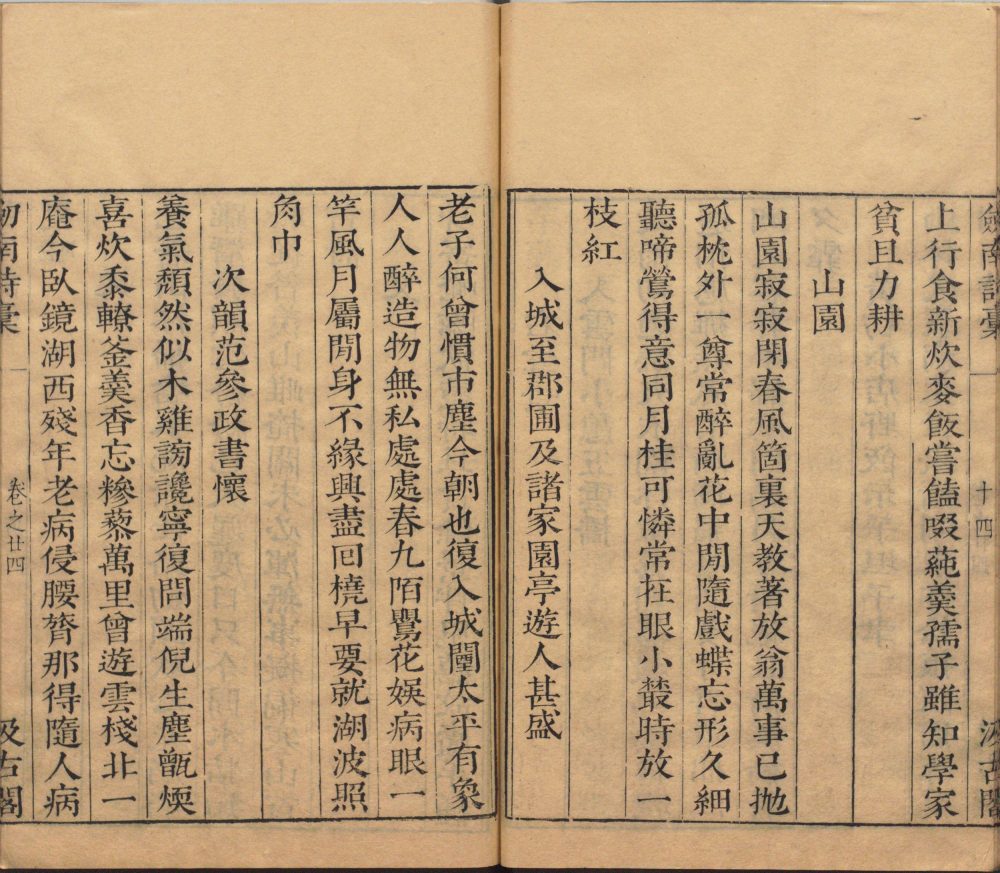 劒南詩稾 十四 汲古閣
上行食新炊麥飯嘗饁啜蒓羹孺子雖知學家
貧且力耕
山園
山園寂寂閉春風箇裏天教著放翁萬事已抛
孤枕外一尊常醉亂花中閒隨戲蝶忘形久細
聽啼鶯得意同月桂可憐常在眼小叢時放一
枝紅
入城至郡圃及諸家園亭遊人甚盛
老子何曾慣市塵今朝也復入城闉太平有象
人人醉造物無私處處春九陌鶯花娛病眼一
竿風月屬閒身不緣興盡囘橈早要就湖波照
角巾
次韻范參政書懷
養氣頽然似木雞謗讒寧復問端倪生塵甑煗
喜炊黍轑釜羹香忘糝藜萬里曾遊雲棧北一
庵今臥鏡湖西殘年老病侵腰膂那得隨人病
劒南詩稾 卷之廿四 汲古閣